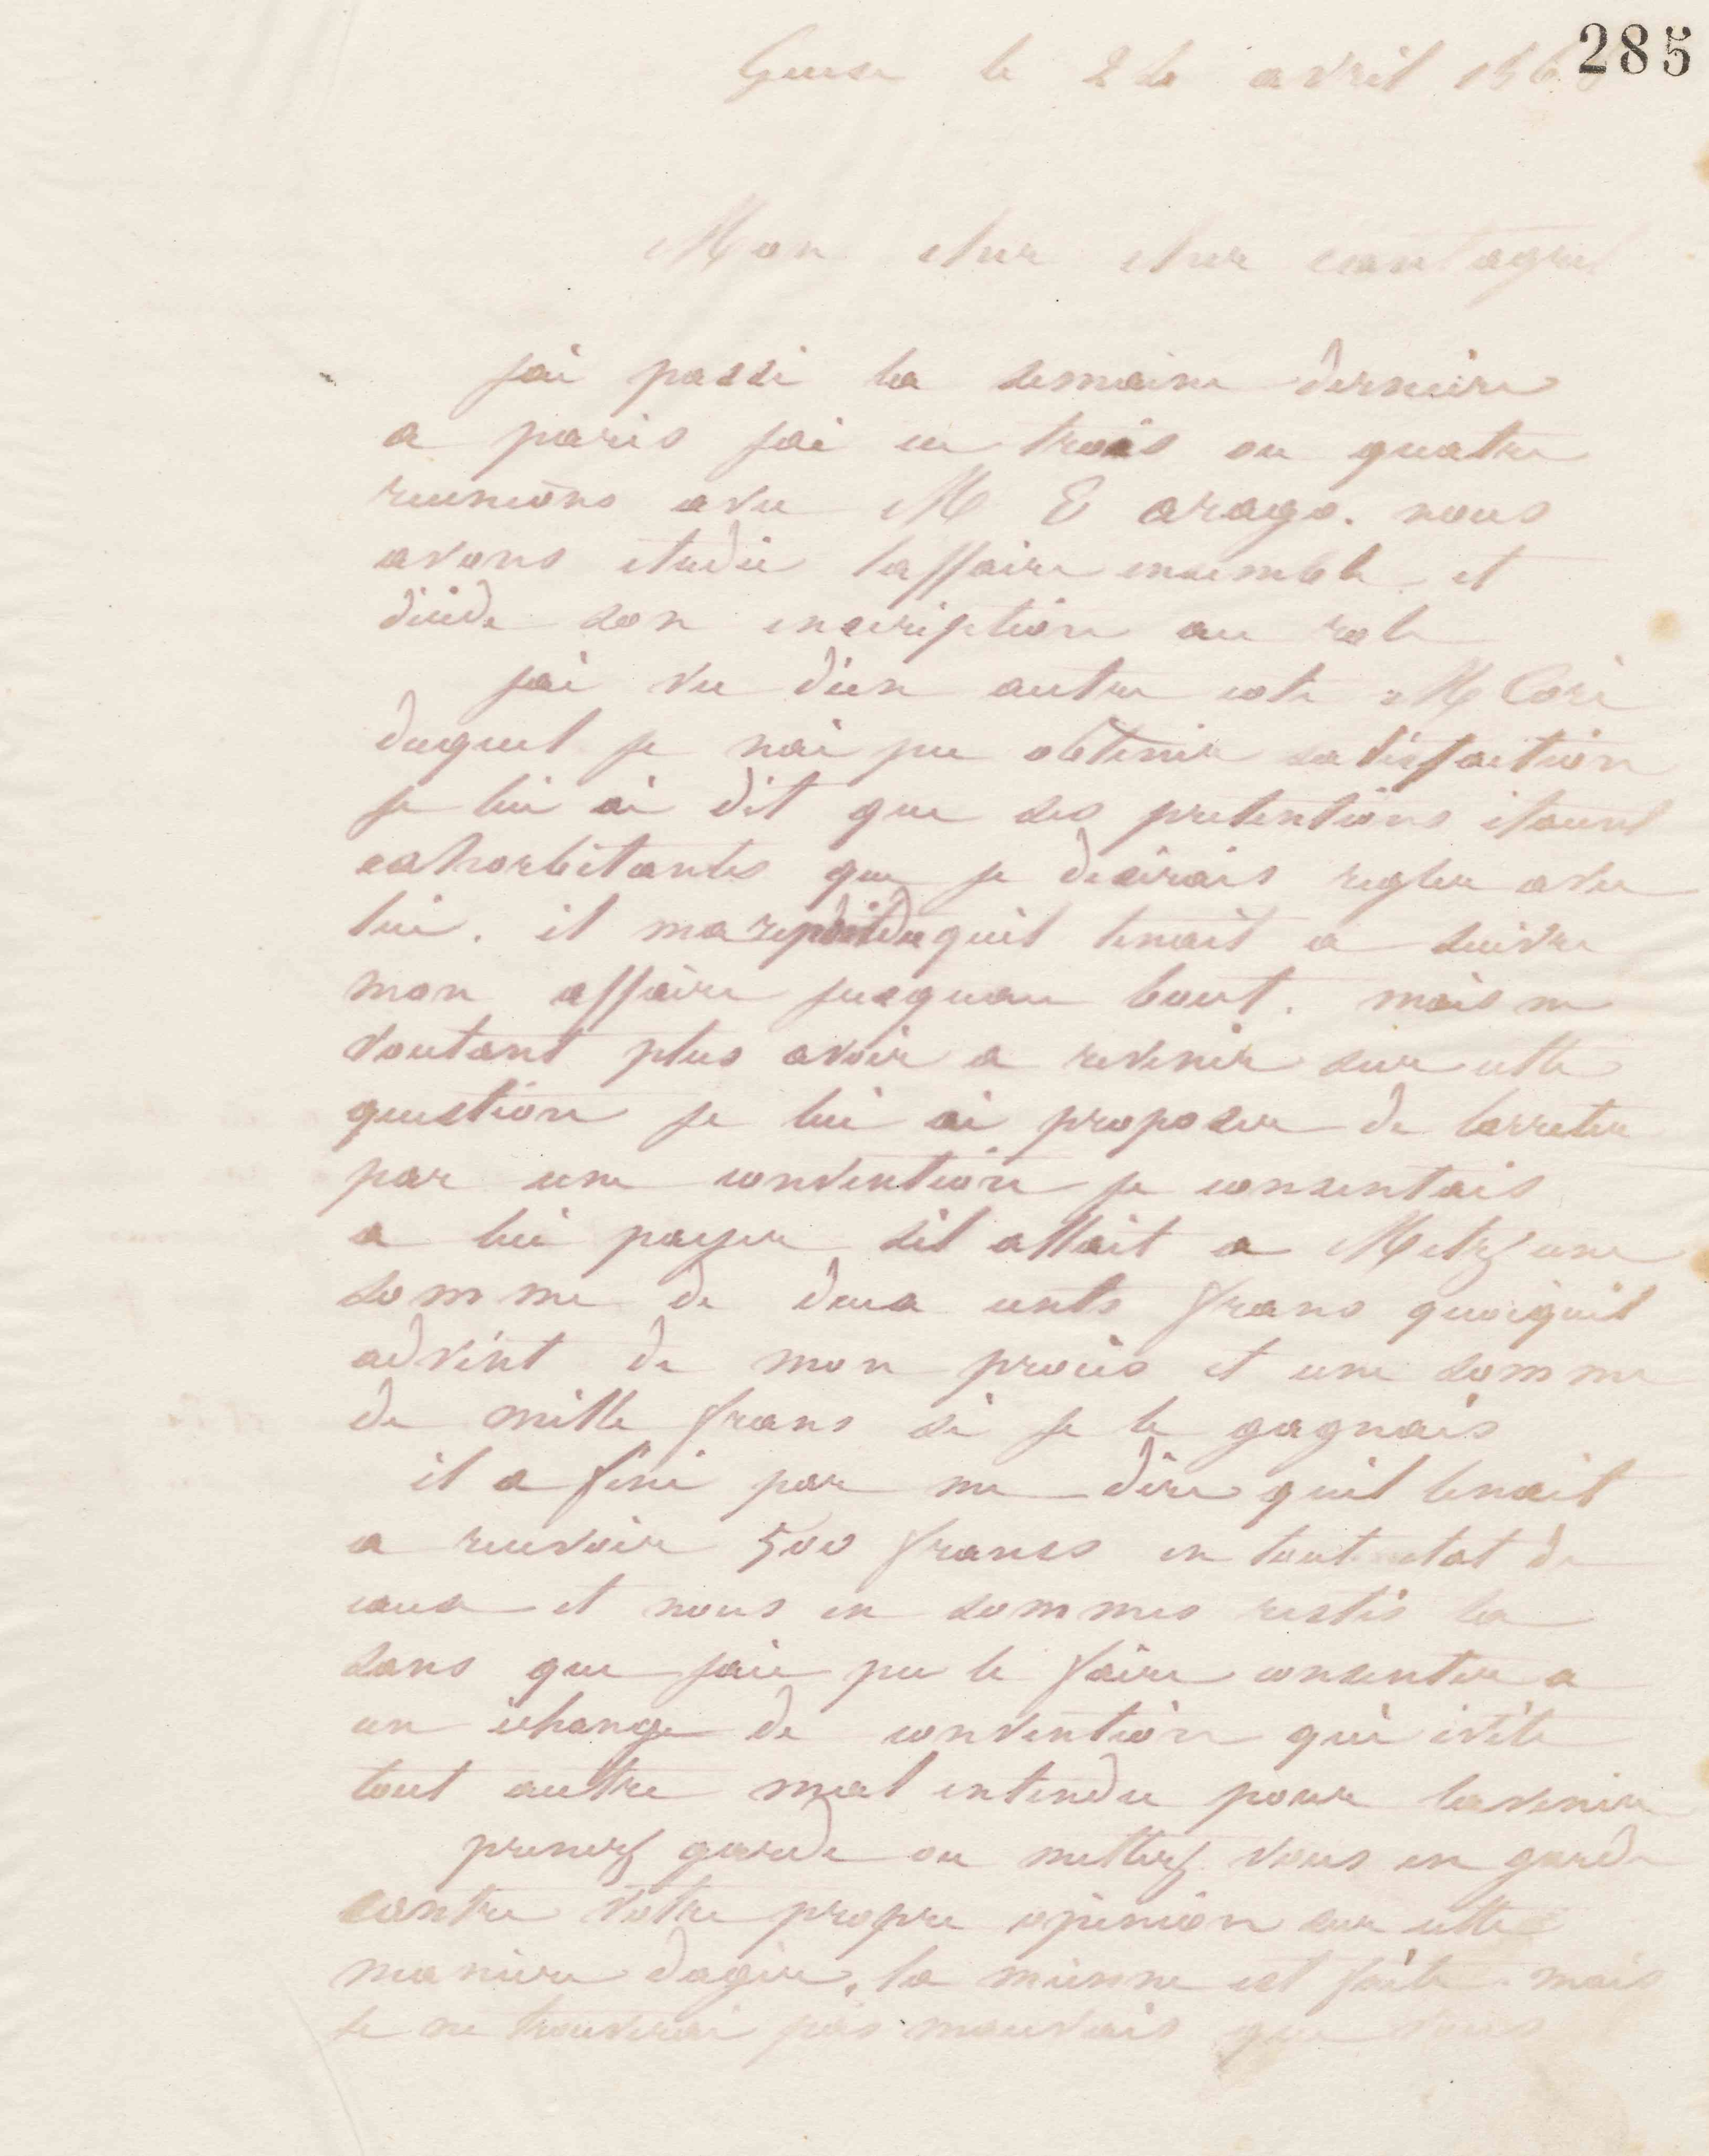 285
Guise le 26 avril 186
Mon cher cher cantagrel
jai passé la semaine derniére
a paris jai eu trois ou quatre
reunions avec M E arago. nous
avons etudié laffaire ensemble et
décide son inscription au role
jai vu dun autre cote M Cari
duquel je nai pu obtenir satisfaction
je lui ai dit que ses pretentions étaient
exhorbitantes que je desirais regler avec
lui. il ma repondu quil tenait a suivre
mon affaire jusquau bout. mais ne
voulant plus avoir a revenir sur cette
question je lui ai proposer de larreter
par une convention je consentais
a lui payer sil allait a Metz une
somme de deux cents frans quoiquil
advint de mon procès et une somme
de mille frans si je le gagnais
il a fini par me dire quil tenait
a recevoir 500 francs en tout etat de
cause et nous en sommes restés la
sans que jaie pu le faire consentir a
un échange de convention qui évite
tout autre mal entendu pour lavenir
prenez garde ou mettez vous en garde
contre votre propre opinion sur cette
maniere dagir, la mienne est faite mais
je ne trouverai pas mauvais que vous